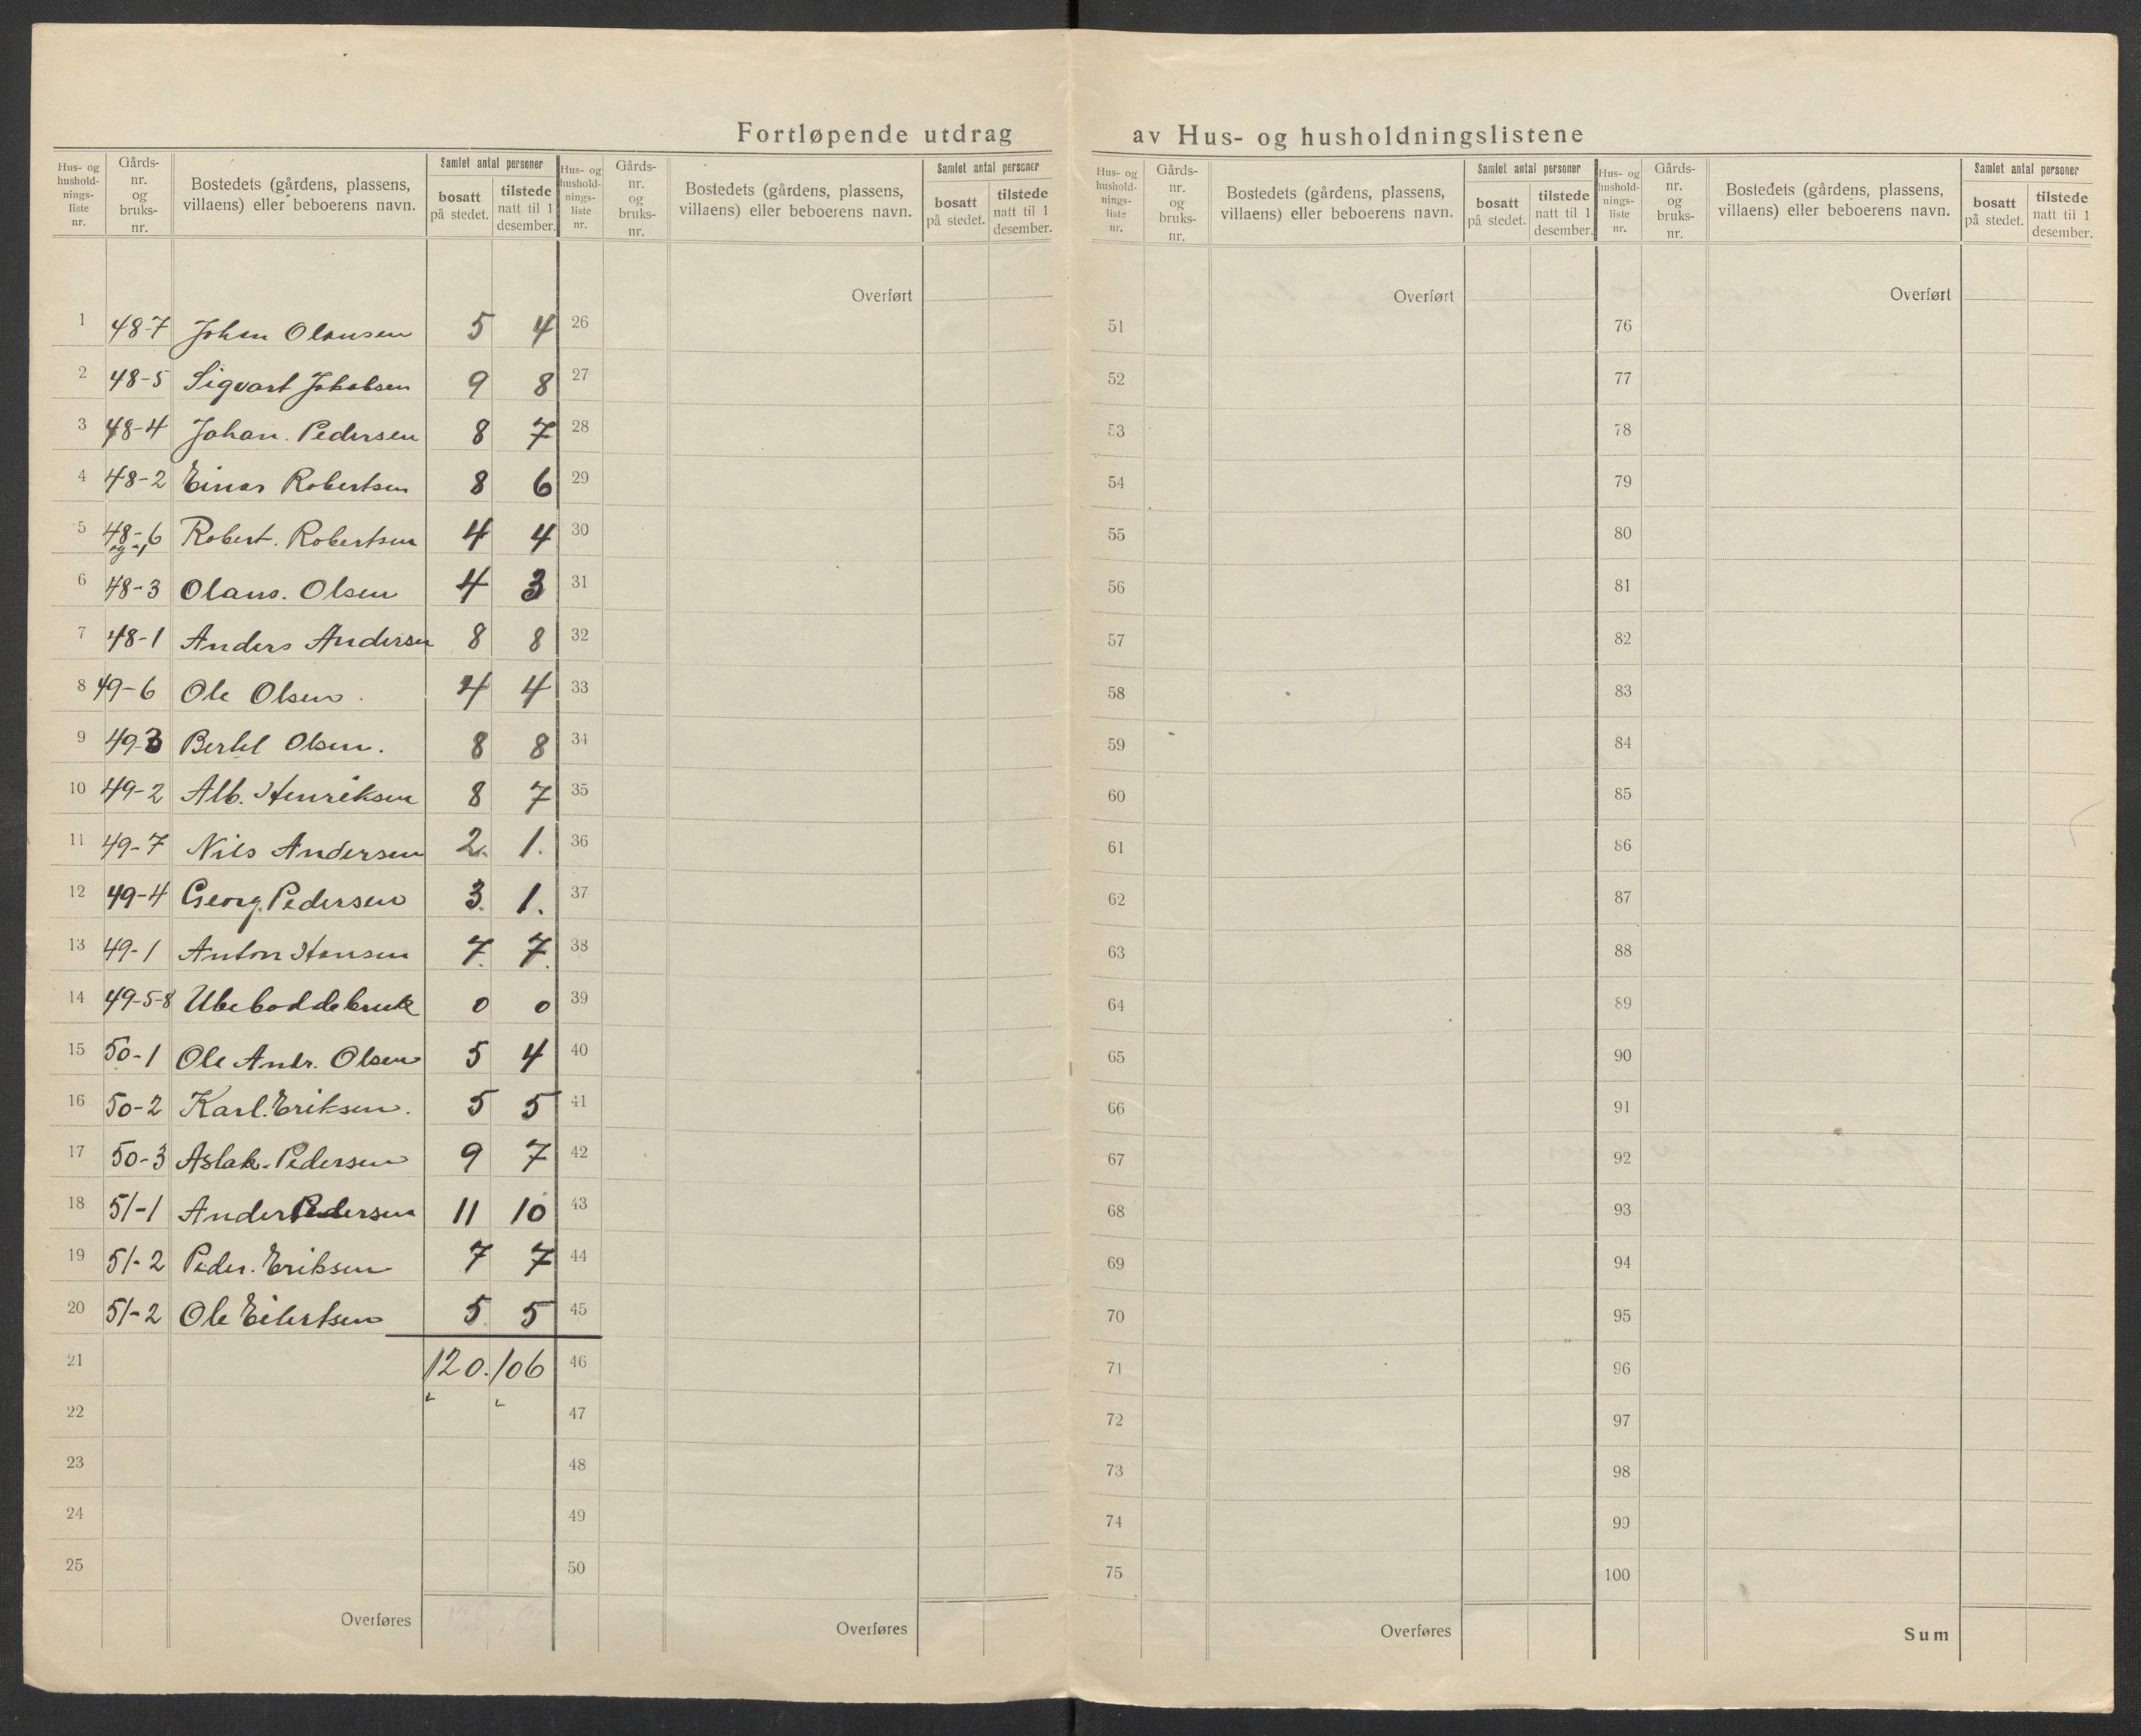 Fortløpende utdrag av Hus- og husholdningslistene
Hus- og husholdnings-liste nr. Gårds-nr. og bruks-nr. Bostedets (gårdens, plassens, villaens) eller beboerens navn. Samlet antal personer bosatt på stedet. tilstede natt til 1 desember.
1 48-7 Johan Olausen 5 4
2 48-5 Sigvart Jakobsen 9 8
3 48-4 Johan. Pedersen 8 7
4 48-2 Einar Robertsen 8 6
5 48-6 og -1 Robert. Robertsen 4 4
6 48-3 Olaus. Olsen 4 3
7 48-1 Anders Andersen 8 8
8 49-6 Ole Olsen. 4 4
9 49-3 Bertel Olsen. 8 8
10 49-2 Alb. Henriksen 8 7
11 49-7 Nils Andersen 2. 1.
12 49-4 Georg. Pedersen 3. 1.
13 49-1 Anton Hansen 7. 7.
14 49-5-8 Ubebodde bruk 0 0
15 50-1 Ole Andr. Olsen 5 4
16 50-2 Karl. Eriksen. 5 5
17 50-3 Aslak. Pedersen 9 7
18 51-1 Anders Pedersen 11 10
19 51-2 Peder. Eriksen 7 7
20 51-2 Ole Eilertsen 5 5
21 120. 106
22
23
24
25
Overføres
Hus- og husholdnings-liste nr. Gårds-nr. og bruks-nr. Bostedets (gårdens, plassens, villaens) eller beboerens navn. Samlet antal personer bosatt på stedet. tilstede natt til 1 desember.
Overført
26
27
28
29
30
31
32
33
34
35
36
37
38
39
40
41
42
43
44
45
46
47
48
49
50
Overføres
Hus- og husholdnings-liste nr. Gårds-nr. og bruks-nr. Bostedets (gårdens, plassens, villaens) eller beboerens navn. Samlet antal personer bosatt på stedet. tilstede natt til 1 desember.
Overført
51
52
53
54
55
56
57
58
59
60
61
62
63
64
65
66
67
68
69
70
71
72
73
74
75
Overføres
Hus- og husholdnings-liste nr. Gårds-nr. og bruks-nr. Bostedets (gårdens, plassens, villaens) eller beboerens navn. Samlet antal personer bosatt på stedet. tilstede natt til 1 desember.
Overført
76
77
78
79
80
81
82
83
84
85
86
87
88
89
90
91
92
93
94
95
96
97
98
99
100
Sum